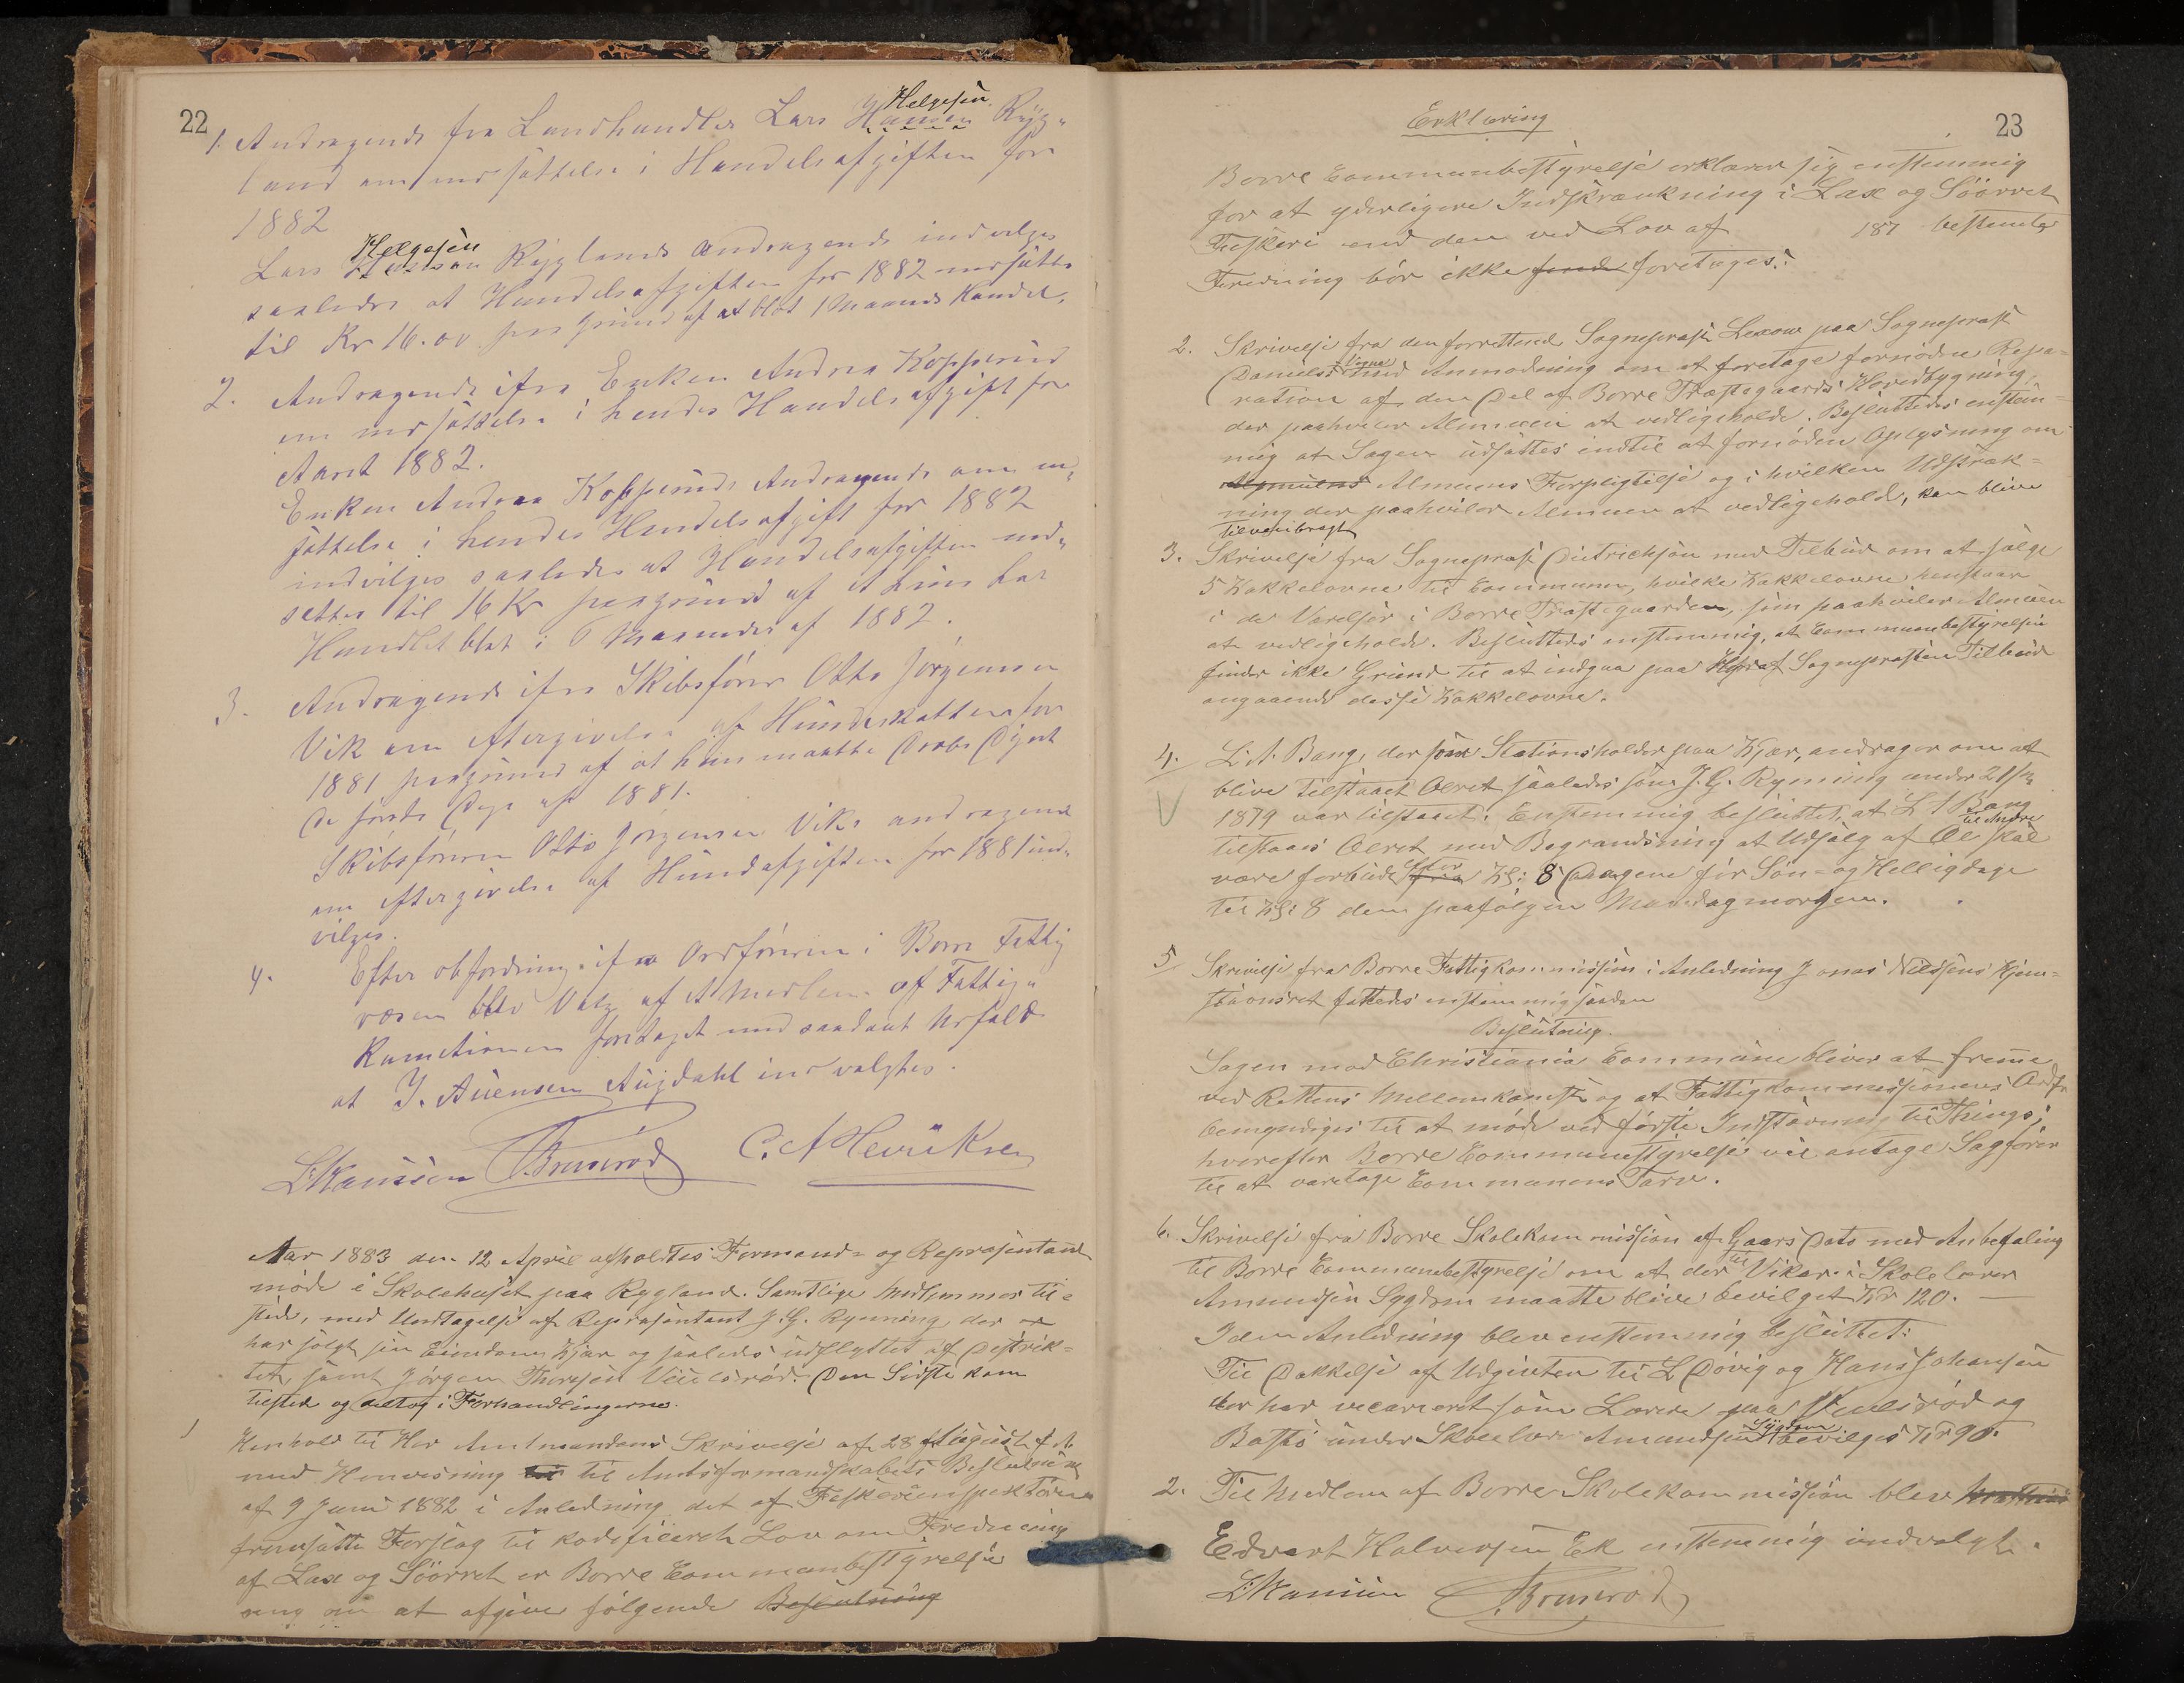 22
Helgesen
1. Andragende fra Landhandler Lars Hansen Ryg„
land om nedsættelse i Handelsafgiften for
1882
Helgesen
Lars Hansen Ryglands Andragende indvilges
saaledes at Handelsafgiften for 1882 nedsættes
til Kr 16.00 paa grund af at blot 1 Maaneds Handel.
2. Andragende ifra Enken Andrea Kopperud
om nedsættelse i hendes Handelsafgift for
Aaret 1882.
Enken Andrea Kopperuds Andragende om ned„
sættelse i hendes Handelsafgift for 1882
indvilges saaledes at Handelsafgiften ned„
settes til 16 Kr paagrund af at hun har
Handlet blot i 6 Maaneder af 1882.
3. Andragende ifra Skibsfører Otto Jørgensen
Vik om eftergivelse af Hundeskatten for
1881 paagrund af at han maatte Dræbe Dyret
De første Dage af 1881.
Skibsføreren Otto Jørgensen Viks andragende
om eftergivelse af Hundafgiften for 1881 ind„
vilges.
4. Efter opfordring ifra Ordføreren i Borre Fattig
væsen blev Valg af et Medlem af Fattig„
Komitionen foretaget med saadant Udfald
at J. Auensen Augdahl indvalgtes.
L. Hanssen Brunerød C. A Henriksen
Aar 1883 den 12 April afholdtes Formands- og Repræsentant
møde i Skolehuset paa Rygland. Samtlige Medlemmer til=
stede, med Undtagelse af Repræsentant J. G. Rynning, der er
har solgt sin Eiendom Kjær og saaledes udflyttet af Distrik=
tet, samt Jørgen Thorsen. Den Sidste kom
tilsted og deltog i Forhandlingerne.
1 Henhold til Her Amtmandens Skrivelse af 28 August f. A.
med Henvisning til til Amtsformandskabets Beslutning
af 9 Juni 1882 i Anledning det af Fiskeriinspektøren
fremsatte Forslag til kodificeret Lov om Fredning
af Lax og Søørret er Borre Communbestyrelse
enig om at afgive følgende Beslutning
23
Erklæring
Borre Communbestyrelse erklærer sig enstemmig
for at yderligere Indskrænkning i Lax og Søørret
Fiskeri end den ved Lov af 187 bestemte
Fredning bør ikke finde foretages.
2. Skrivelse fra den forrettende Sogneprest Lexow paa Sogneprest
Vegne
Daniels med Anmodning om at foretage fornøden Repa=
ration af den Del af Borre Præstegaards Hovedbygning,
der paahviler Almuen at vedligeholde. Besluttedes enstem=
mig at Sagen udsættes indtil at fornøden Oplysning om
Almuens Almuens Forpligtelse og i hvilken Udstræk=
ning der paahviler Almuen at vedligehold, kan blive
tilveiebragt
3. Skrivelse fra Sogneprest Dietrichson med Tilbud om at sælge
5 Kakkelovne til Communen, hvilke Kakkelovne henstaar
i de Værelser i Borre Præstegaarden, som paahviler Almuen
at vedligeholde. Besluttedes enstemmig, at Communbestyrelsen
finder ikke Grund til at indgaa paa Sognepresten Tilbud
angaaende disse Kakkelovne.
4. L. A. Bang, der som Stationsholder paa Kjær, andrager om at
blive tilstaaet Ølret saaledes som J. G. Rynning under 21/
1879 var tilstaaet. Enstemmig besluttet, at L A Bang
til Andre
tilstaaes Ølret med Begrændsning at Udsalg af Øl skal
efter
være forbudt fra Kl: 8 Dagene før Søn- og Helligdage
til Kl: 8 den paafølgen Mandag morgen.
5 Skrivelse fra Borre Fattigkommission i Anledning Jonas Nilssens Hjem=
stavnsret fattedes enstemmig saadan
Beslutning.
Sagen mod Christiania Commune bliver at fremme
ved Rettens Mellemkomst og at Fattigkommissionens Ordf
bemyndiges til at møde ved første Indstævning til Things;
hvorefter Borre Communestyrelse vil antage Sagfører
til at varetage Communens Tarv.
6. Skrivelse fra Borre Skolekommission af Gaars Dato med Anbefaling
til
til Borre Communebestyrelse om at der Vikar i Skolelærer
Amundsen Sygdom maatte blive bevilget Kr 120.
I den Anledning blev enstemmig besluttet:
Til Dækkelse af Udgivten til L Døvig og Hans Johansen
der har vicarieret som Lærere paa og
Sygdom
Bastø under Skolelær Amundsen bevilges Kr 90.
2. Til Medlem af Borre Skolekommission blev
Edvart Halvorsen Ek enstemmig indvalgt.
L. Hanssen Brunerød